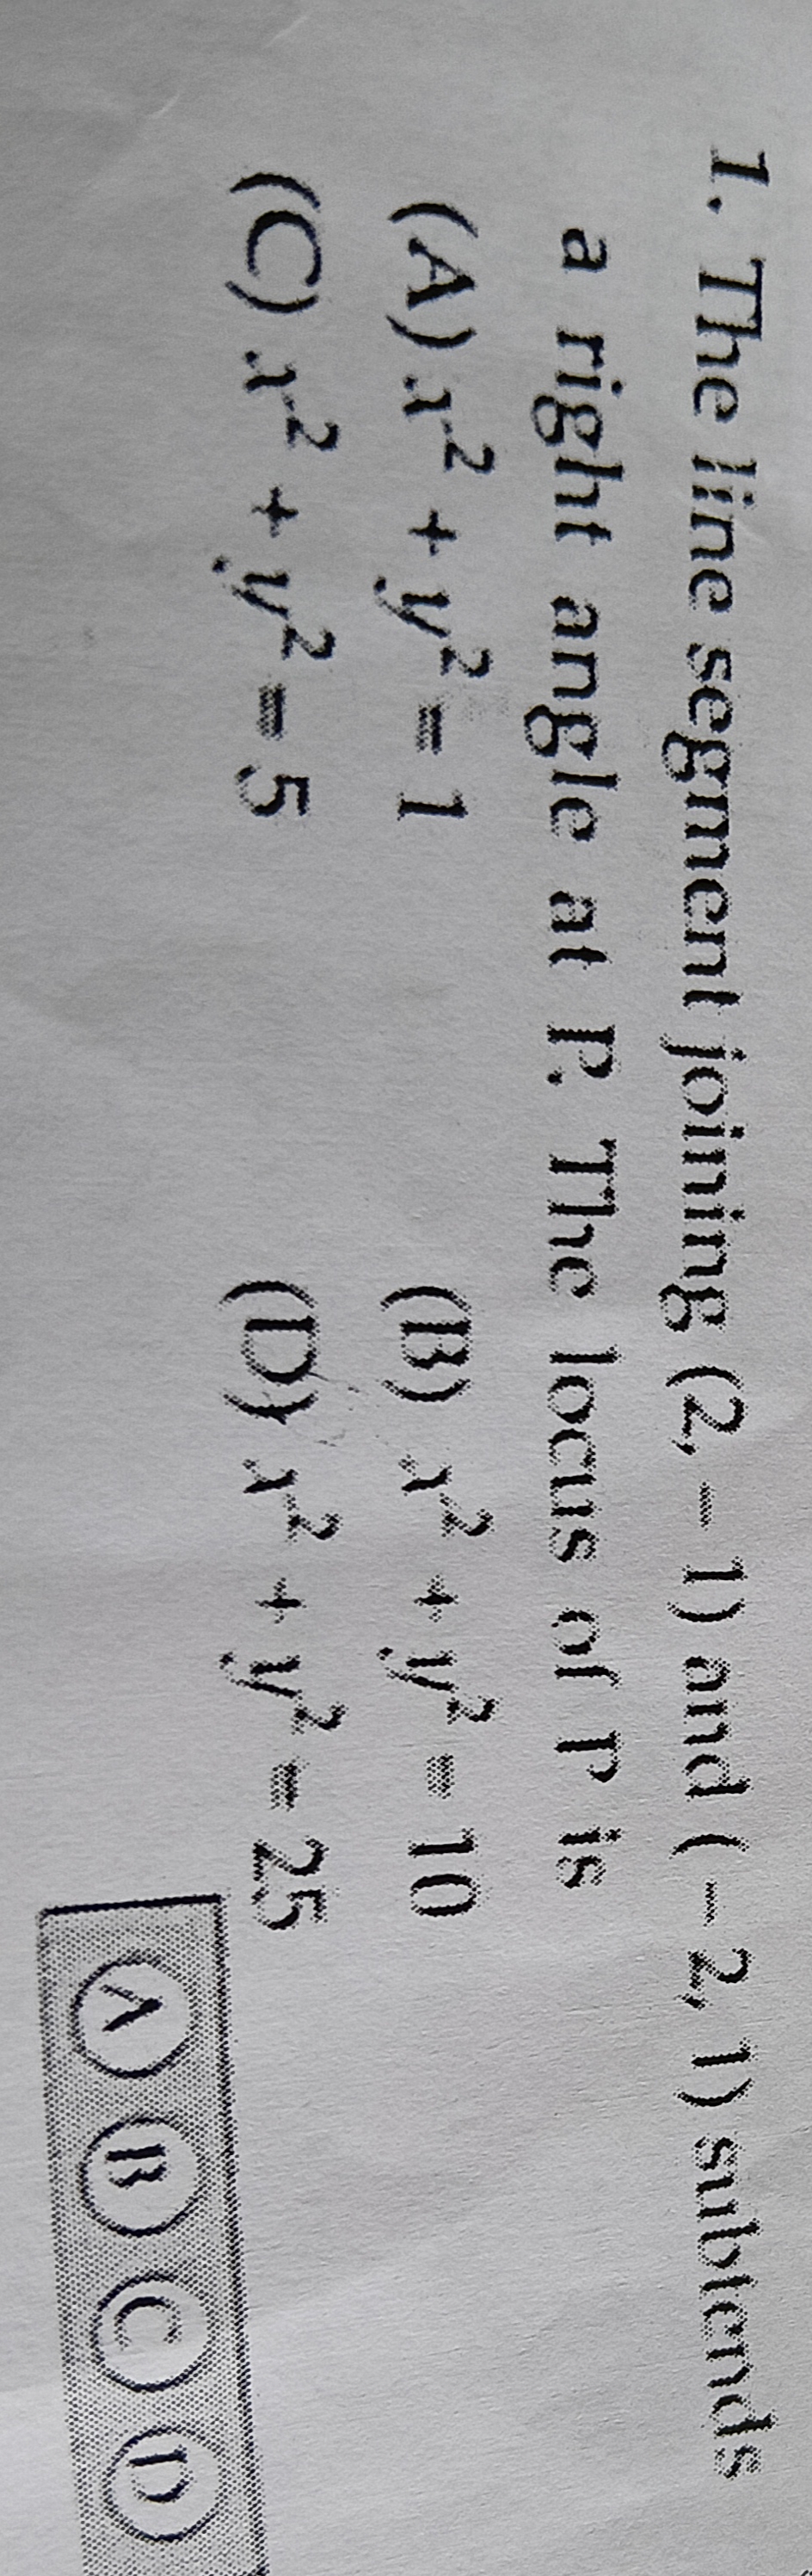 1. The line segment joining (2, – 1) and ( – 2, 1) subtends
a right angle at P. The locus of P is
(A) x² + y² = 1 (B) x² + y² = 10
(C) x² + y² = 5 (D) x² + y² = 25
A B C D